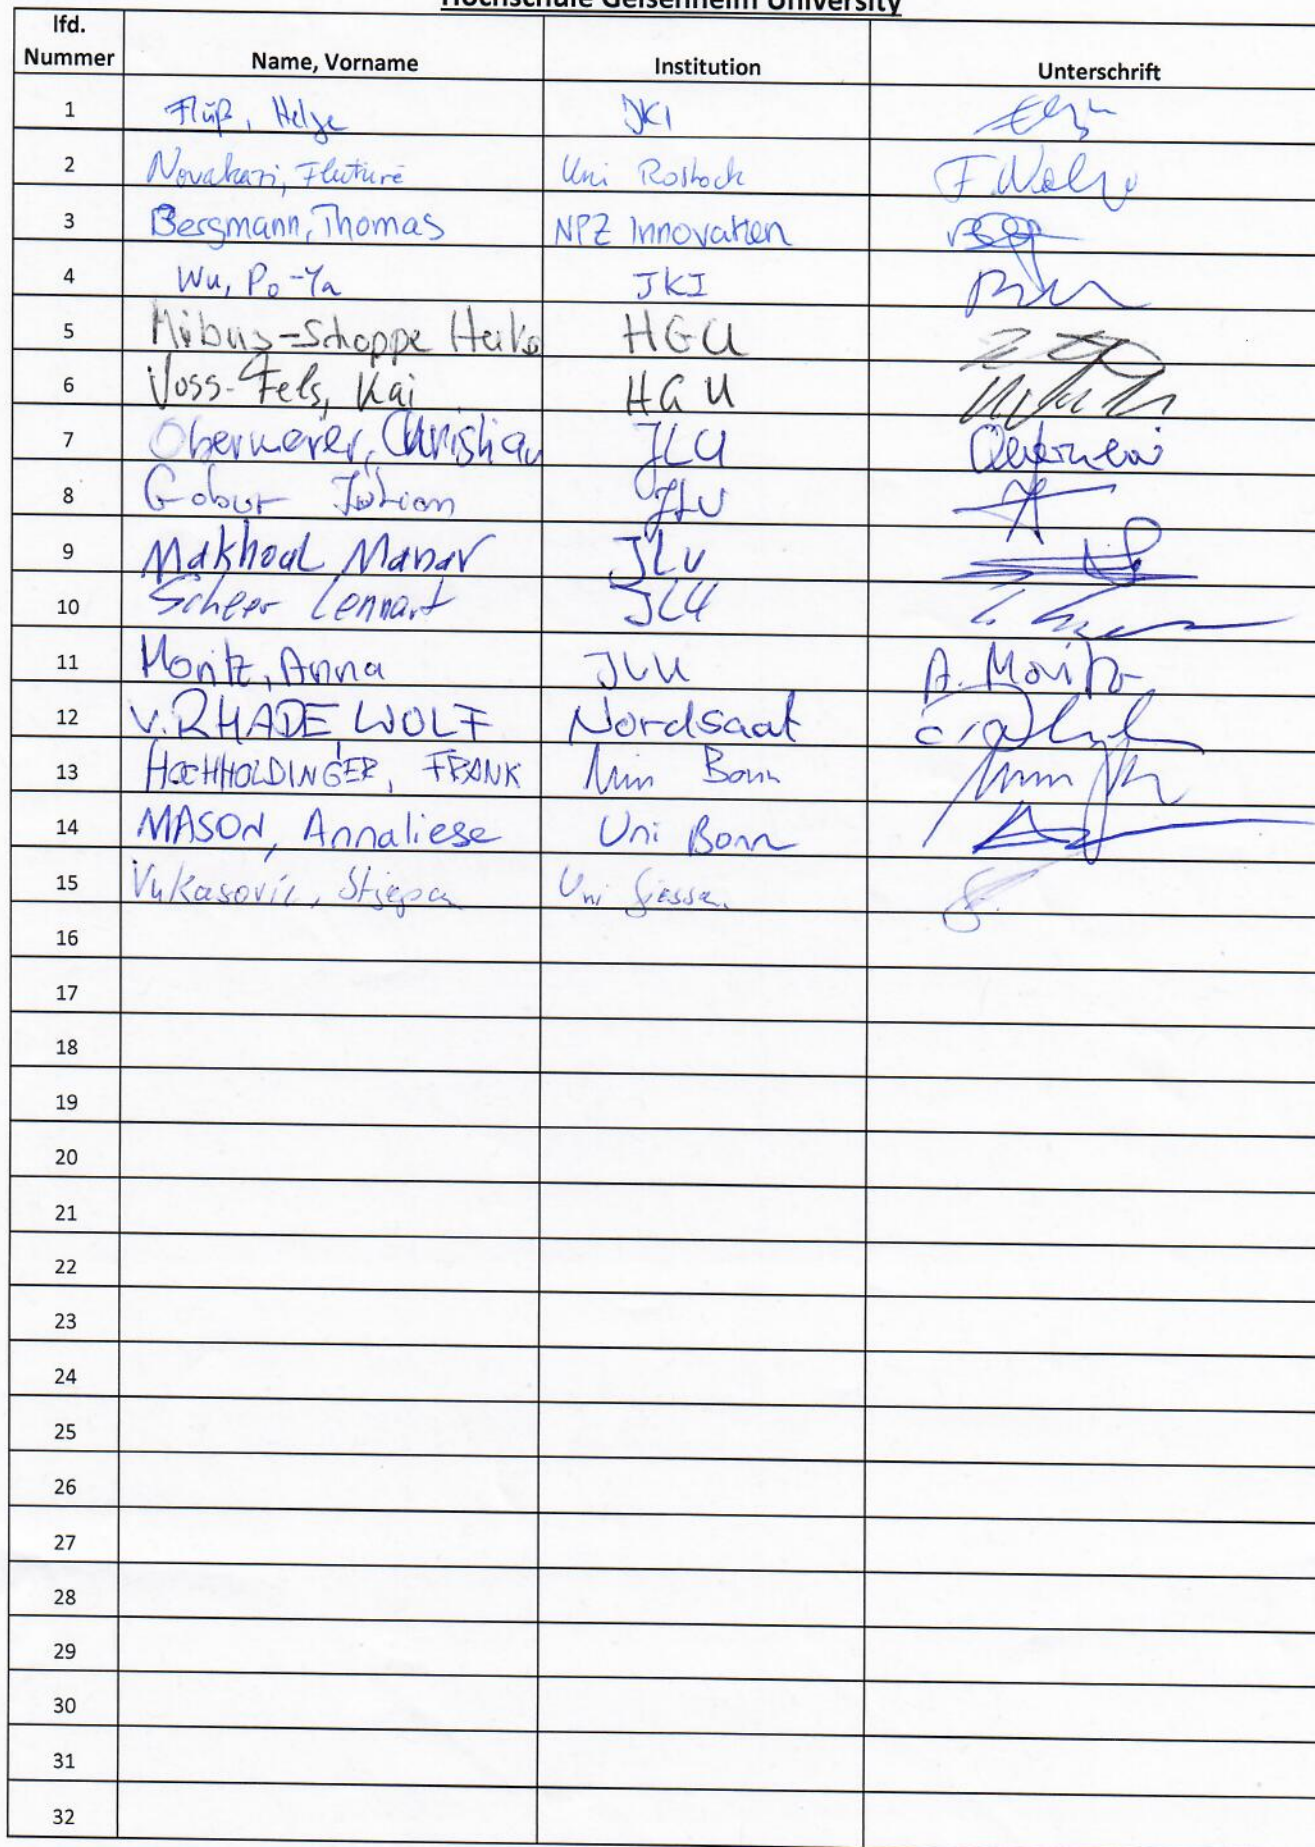 Hochschule Geisenheim University
lfd. Nummer Name, Vorname Institution Unterschrift
1 Flüß, Helge JKI
2 Novakazi, Fluturë Uni Rostock
3 Bergmann, Thomas NPZ Innovation
4 Wu, Po-Ya JKI
5 Möbus-Schoppe Heike HGU
6 Voss-Fels, Kai HGU
7 Obermeier, Christian JLU
8 Gabur Iulian JLU
9 Makhoul Manar JLU
10 Scheer Lennart JLU
11 Moritz, Anna JLU A. Moritz
12 V. RHADE, WOLF Nordsaat
13 HOCHHOLDINGER, FRANK Uni Bonn
14 MASON, Annaliese Uni Bonn
15 Vukasovic, Stjepan Uni Giessen
16
17
18
19
20
21
22
23
24
25
26
27
28
29
30
31
32